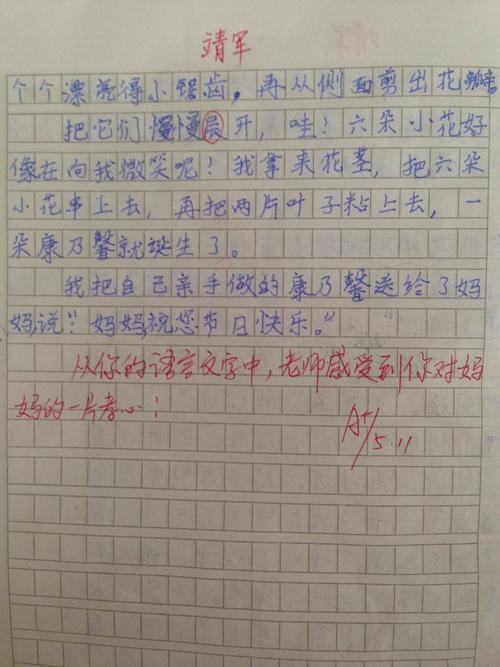 靖军
个个漂亮得小锯齿，再从侧面剪出花瓣。
把它们慢慢展开，哇！六朵小花好
像在向我微笑呢！我拿来花茎，把六朵
小花串上去，再把两片叶子粘上去，一
朵康乃馨就诞生了。
我把自己亲手做的康乃馨送给了妈
妈,说:"妈妈,祝您节日快乐。"
从你的语言文字中，老师感受到你对妈
妈的一片孝心！
A+
5.11